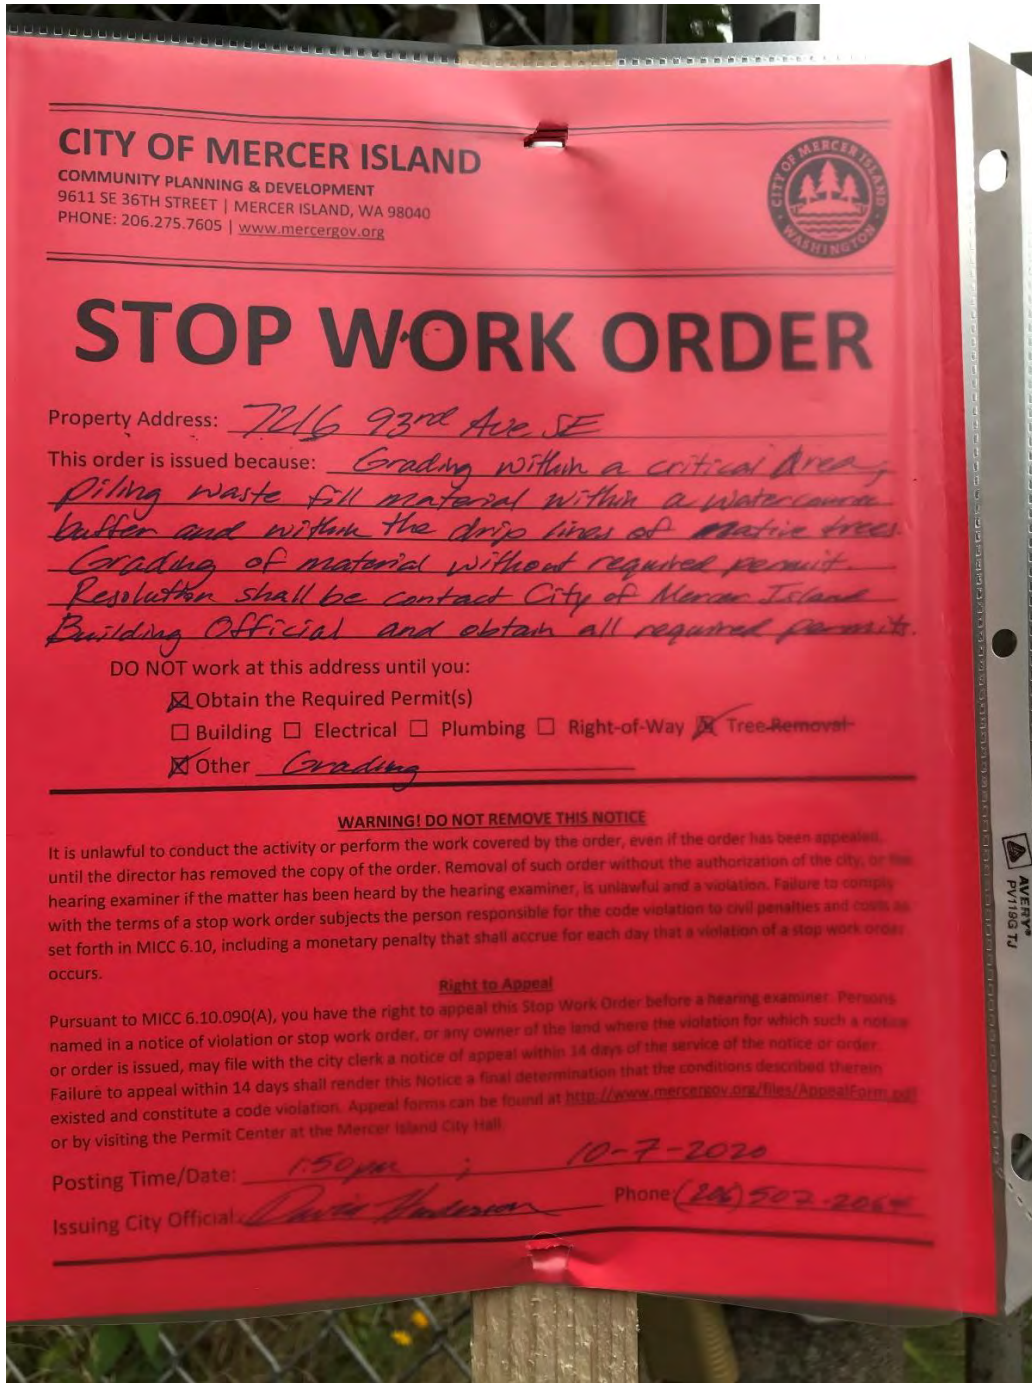 CITY OF MERCER ISLAND
COMMUNITY PLANNING & DEVELOPMENT
9611 SE 36TH STREET | MERCER ISLAND, WA 98040
PHONE: 206.275.7605 | www.mercergov.org
CITY OF MERCER ISLAND
WASHINGTON
STOP WORK ORDER
Property Address: 7216 93rd Ave. SE
This order is issued because: Grading within a critical Area,
piling waste fill material within a watercourse
buffer and within the drip lines of native trees.
Grading of material without required permit.
Resolution shall be contact City of Mercer Island
Building Official and obtain all required permits.
DO NOT work at this address until you:
☒ Obtain the Required Permit(s)
☐ Building ☐ Electrical ☐ Plumbing ☐ Right-of-Way ☒ Tree Removal
☒ Other Grading
WARNING! DO NOT REMOVE THIS NOTICE
It is unlawful to conduct the activity or perform the work covered by the order, even if the order has been appealed,
until the director has removed the copy of the order. Removal of such order without the authorization of the city, or the
hearing examiner if the matter has been heard by the hearing examiner, is unlawful and a violation. Failure to comply
with the terms of a stop work order subjects the person responsible for the code violation to civil penalties and costs as
set forth in MICC 6.10, including a monetary penalty that shall accrue for each day that a violation of a stop work order
occurs.
Right to Appeal
Pursuant to MICC 6.10.090(A), you have the right to appeal this Stop Work Order before a hearing examiner. Persons
named in a notice of violation or stop work order, or any owner of the land where the violation for which such a notice
or order is issued, may file with the city clerk a notice of appeal within 14 days of the service of the notice or order.
Failure to appeal within 14 days shall render this Notice a final determination that the conditions described therein
existed and constitute a code violation. Appeal forms can be found at http://www.mercergov.org/files/AppealForm.pdf
or by visiting the Permit Center at the Mercer Island City Hall
Posting Time/Date: 1:50pm ; 10-7-2020
Issuing City Official: Henderson Phone: (206) 502-206
AVERY®
PV119G TJ